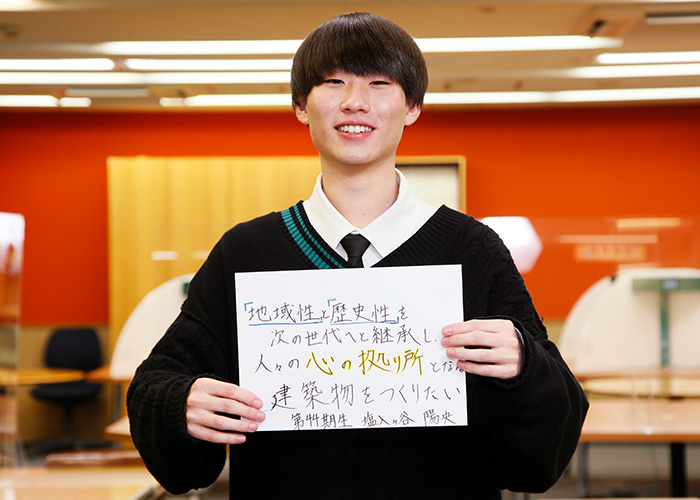 「地域性」と「歴史性」を
次の世代へと継承し、
人々の心の拠り所とな
建築物をつくりたい
期生 塩入ヶ谷 陽央